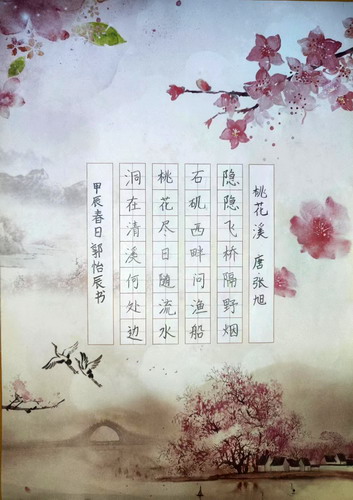 桃花溪 唐 张旭
隐隐飞桥隔野烟
石矶西畔问渔船
桃花尽日随流水
洞在清溪何处边
甲辰春日 郭怡辰书